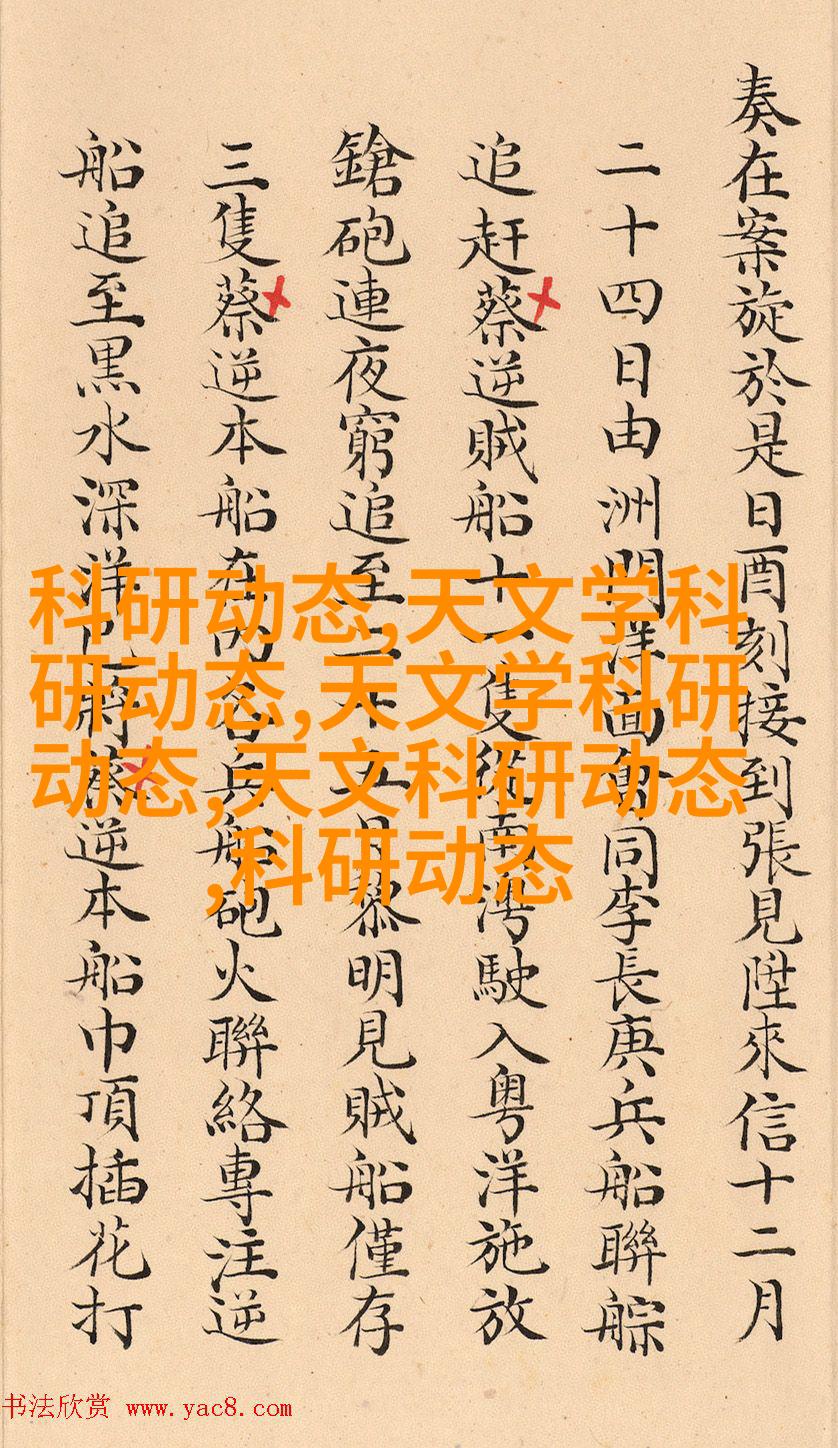 奏在案旋於是日酉刻接到張見陞來信十二月
二十四日由洲門洋面會同李長庚兵船聯䑸
追赶蔡逆賊船十一隻從南灣駛入粤洋施放
鎗砲連夜窮追至二十五日黎明見賊船僅存
三隻蔡逆本船在內各兵船砲火聯絡專注逆
船追至黒水深洋蔡逆本船巾頂插花打
科研动态,天文学科
研动态,天文学科研
动态,天文科研动态
,科研动态
书法欣赏 www.yac8.com